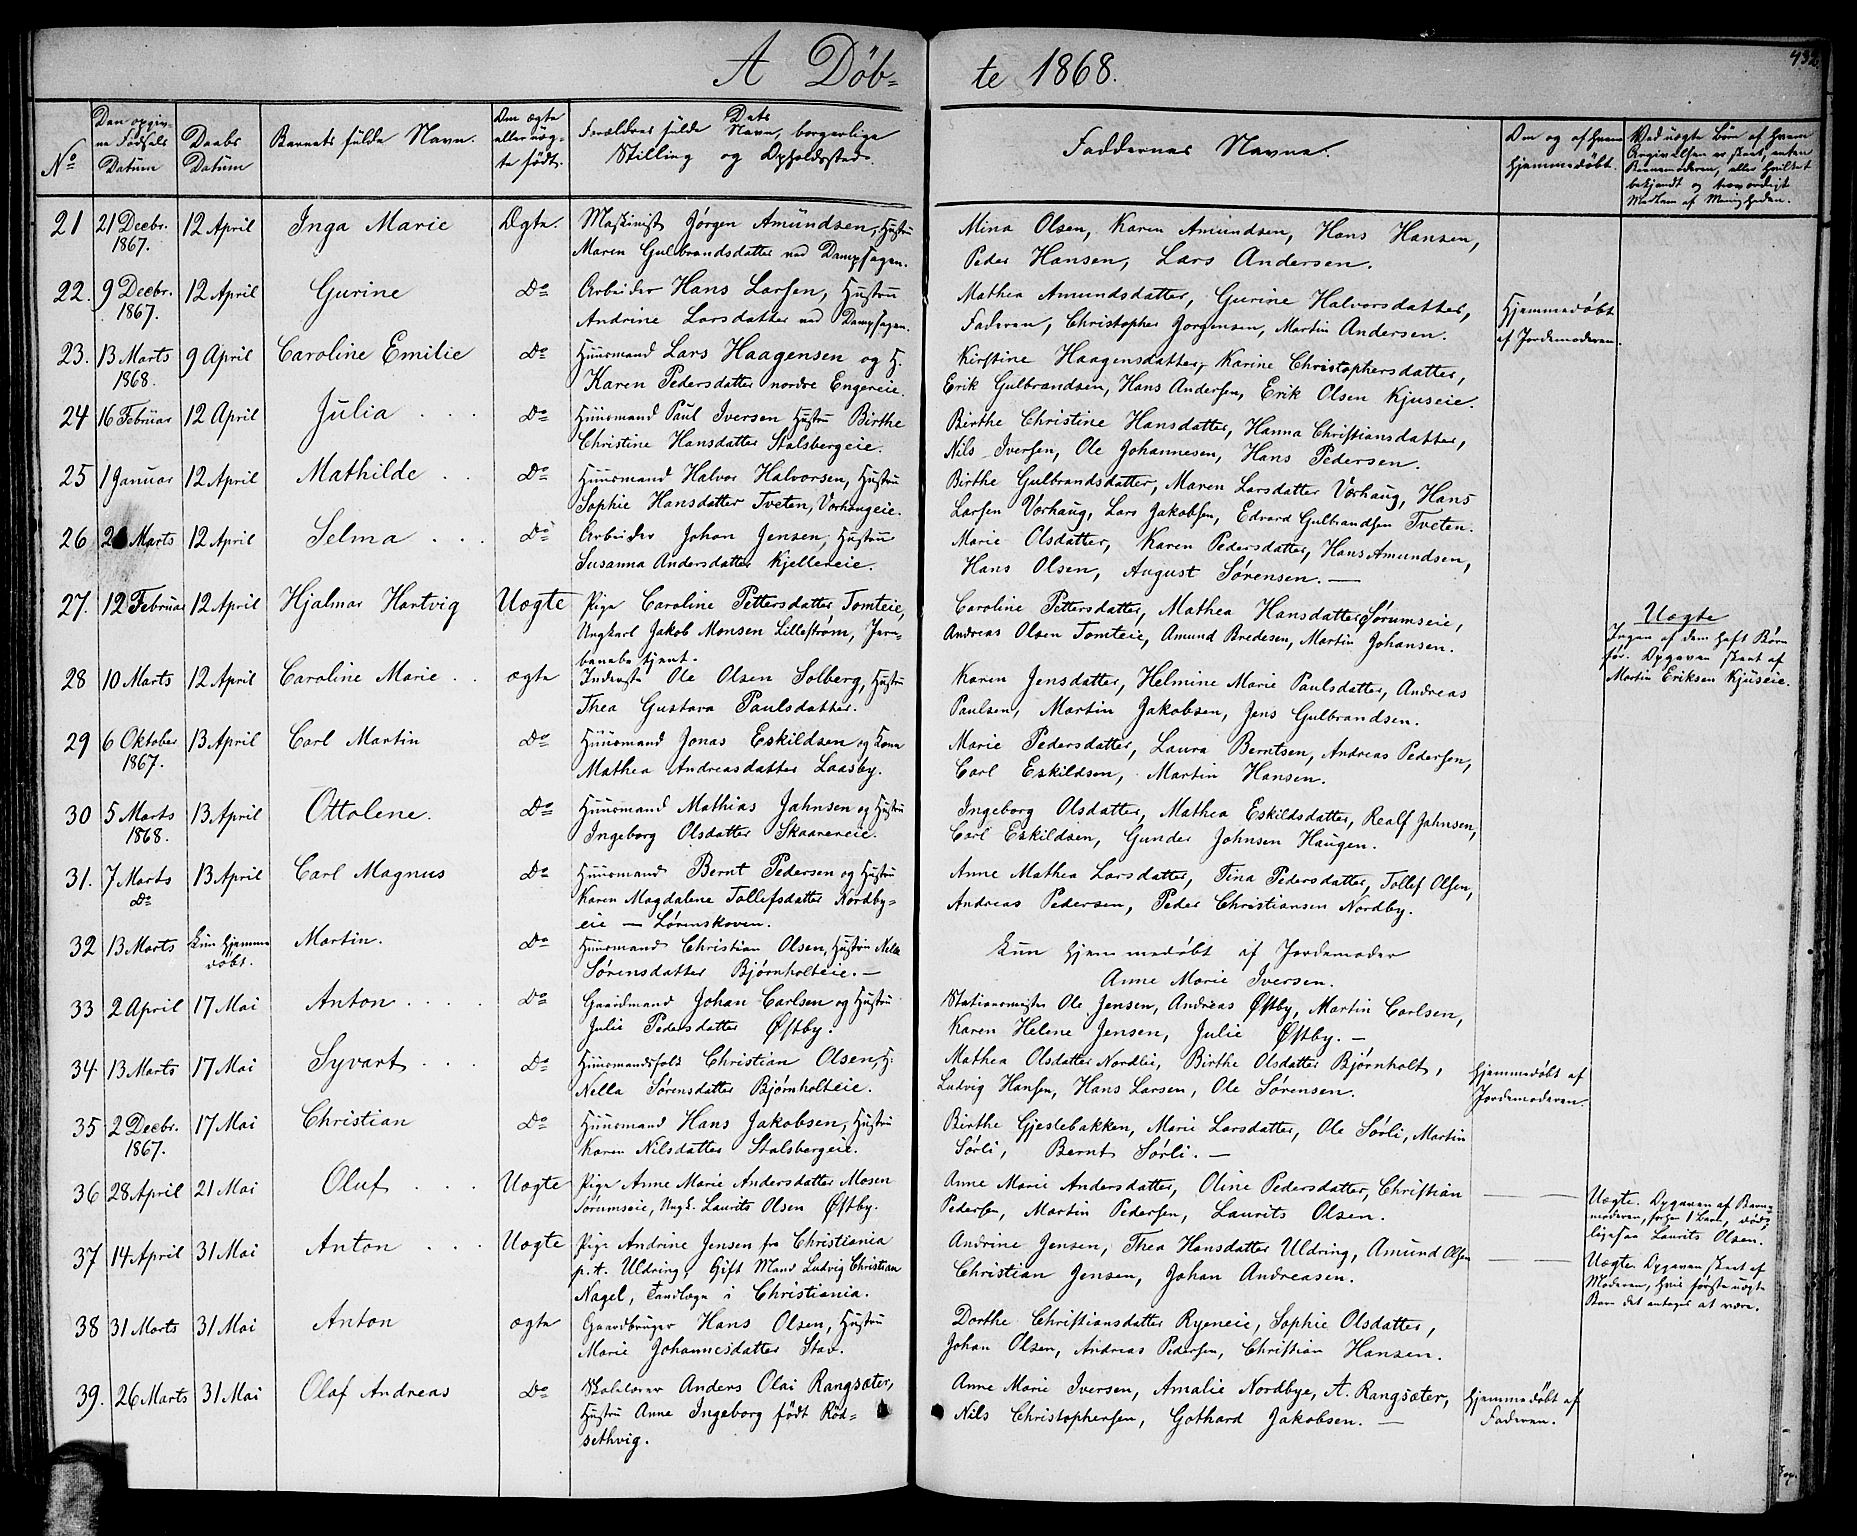 A Döb- te 1868.
432
No
Den opgiv-
ne Fødsels
Datum
Daabs
Datum
Barnets fulde Navn.
Om ægte
eller uæg-
te født.
Forældres fulde Navn, borgerlige
Stilling og Opholdssted.
Faddernes Navne.
Om og af hvem
hjemmedøbt.
Ved uægte Børn af hvem
Opgivelsen er skeet, enten
Barnemoderen, eller hvilket
bekjendt og troværdigt
Medlem af Menigheden.
21 21 Decbr. 12 April Inga Marie Ægte. Maskinist Jørgen Amundsen, Hustru Mina Olsen, Karen Amundsen, Hans Hansen,
1867. Maren Gulbrandsdatter ved Dampsagen. Peder Hansen, Lars Andersen.
22. 9 Decbr. 12 April Gurine Do Arbeider Hans Larsen, Hustru Mathea Amundsdatter, Gurine Halvorsdatter, Hjemmedøbt
1867. Andrine Larsdatter ved Dampsagen. Faderen, Christopher Jorgensen, Martin Andersen. af Jordemoderen.
23. 13 Marts 9 April Caroline Emilie Do Huusmand Lars Haagensen og H. Kirstine Haagensdatter, Karine Christophersdatter,
1868. Karen Pedersdatter nordre Engereie. Erik Gulbrandsen, Hans Andersen, Erik Olsen Kjuseie.
24 16 Februar 12 April Julia Do Huusmand Paul Iversen Hustru Birthe Birthe Christine Hansdatter, Hanna Christiansdatter,
Christine Hansdatter Stalsbergeie. Nils Iversen, Ole Johannesen, Hans Pedersen.
25 1 Januar 12 April Mathilde Do Huusmand Halvor Halvorsen, Hustru Birthe Gulbrandsdatter, Maren Larsdatter Vorhaug, Hans
Sophie Hansdatter Tveten, Vorhaugeie. Larsen Vorhaug, Lars Jakobsen, Edvard Gulbrandsen Tveten.
26 Marts 12 April Selma Do Arbeider Johan Jensen, Hustru Marie Olsdatter, Karen Pedersdatter, Hans Amundsen,
Susanna Andersdatter Kjellereie. Hans Olsen, August Sørensen. —
27. 12 Februar 12 April Hjalmar Hartvig Uægte Pige Caroline Pettersdatter Tomteie, Caroline Pettersdatter, Mathea Hansdatter Sørumseie, Uægte
Ungkarl Jakob Monsen Lillestrøm, Jern- Andreas Olsen Tomteie, Amund Bredesen, Martin Johansen. Ingen af dem haft Børn
banebetjent. før. Opgaven skeet af
28 10 Marts 12 April Caroline Marie ægte Inderst Ole Olsen Solberg, Hustru Karen Jensdatter, Helmine Marie Paulsdatter, Andreas Martin Eriksen Kjuseie.
Thea Gustava Paulsdatter. Paulsen, Martin Jakobsen, Jens Gulbrandsen.
29 6 Oktober 13 April Carl Martin Do Huusmand Jonas Eskildsen og Kone Marie Pedersdatter, Laura Berntsen, Andreas Pedersen,
1867. Mathea Andreasdatter Laasby. Carl Eskildsen, Martin Hansen.
30 5 Marts 13 April Ottolene. Do Huusmand Mathias Jahnsen og Hustru Ingeborg Olsdatter, Mathea Eskildsdatter, Realf Jahnsen,
1868. Ingeborg Olsdatter Skaarereie. Carl Eskildsen, Gunder Johnsen Haugen.
31. 7 Marts 13 April Carl Magnus Do Huusmand Bernt Pedersen og Hustru Anne Mathea Larsdatter, Tina Pedersdatter, Tollef Olsen,
Do Karen Magdalene Tollefsdatter Nordby- Andreas Pedersen, Peder Christiansen Nordby.
eie — Lørenskoven.
32 13 Marts kun hjemme Martin. Do Huusmand Christian Olsen, Hustru Nella kun hjemmedøbt af Jordemoder
døbt. Sørensdatter Bjørnholteie. — Anne Marie Iversen.
33 2 April 17 Mai Anton Do Gaardmand Johan Carlsen og Hustru Stationsmester Ole Jensen, Andreas Østby, Martin Carlsen,
Julie Pedersdatter Østby. Karen Helene Jensen, Julie Østby. —
34 13 Marts 17 Mai Syvart Do Huusmandsfolk Christian Olsen, H. Mathea Olsdatter Nordlie, Birthe Olsdatter Bjørnholt, Hjemmedøbt af
Nella Sørensdatter Bjørnholteie. Ludvig Hansen, Hans Larsen, Ole Sørensen. Jordemoderen.
35 2 Decbr. 17 Mai Christian Do Huusmand Hans Jakobsen, Hustru Birthe Gjeslebakken, Marie Larsdatter, Ole Sørli, Martin
1867. Karen Nilsdatter Stalsbergeie. Sørli, Bernt Sørli. —
36 28 April 21 Mai Oluf Uægte Pige Anne Marie Andersdatter Mosen Anne Marie Andersdatter, Oline Pedersdatter, Christian — — Uægte. Opgaven af Barne-
Sørumseie, Ungk. Laurits Olsen Østby. Pedersen, Martin Pedersen, Laurits Olsen. moderen, 1 Barn,
ligesaa Laurits Olsen.
37 14 April 31 Mai Anton Uægte Pige Andrine Jensen fra Christiania Andrine Jensen, Thea Hansdatter Uldring, Amund Olsen — — Uægte. Opgaven skeet af
p.t. Uldring, Gift Mand Ludvig Christian Christian Jensen, Johan Andreasen. Moderen, hvis første uægte
Nagel, Tandlæge i Christiania. Barn det antages at være.
38 31 Marts 31 Mai Anton ægte Gaardbruger Hans Olsen, Hustru Dorthe Christiansdatter Ryeneie, Sophie Olsdatter,
Marie Johannesdatter Stav. Johan Olsen, Andreas Pedersen, Christian Hansen.
39. 26 Marts 31 Mai Olaf Andreas Do Skolelærer Anders Olai Rangsæter, Anne Marie Iversen, Amalie Nordbye, A. Rangsæter, Hjemmedøbt af
Hustru Anne Ingeborg født Röd- Nils Christophersen, Gothard Jakobsen. — Faderen.
sethvig.